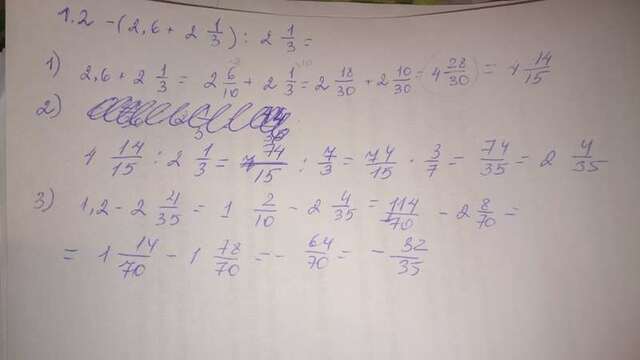 1.2 - (2,6 + 2 1/3) : 2 1/3 =
1) 2,6 + 2 1/3 = 2 6/10 + 2 1/3 = 2 18/30 + 2 10/30 = 4 28/30 = 4 14/15
2)
4 14/15 : 2 1/3 = 74/15 : 7/3 = 74/15 · 3/7 = 74/35 = 2 4/35
3) 1,2 - 2 4/35 = 1 2/10 - 2 4/35 = 1 14/70 - 2 8/70 =
= 1 14/70 - 1 78/70 = - 64/70 = - 32/35